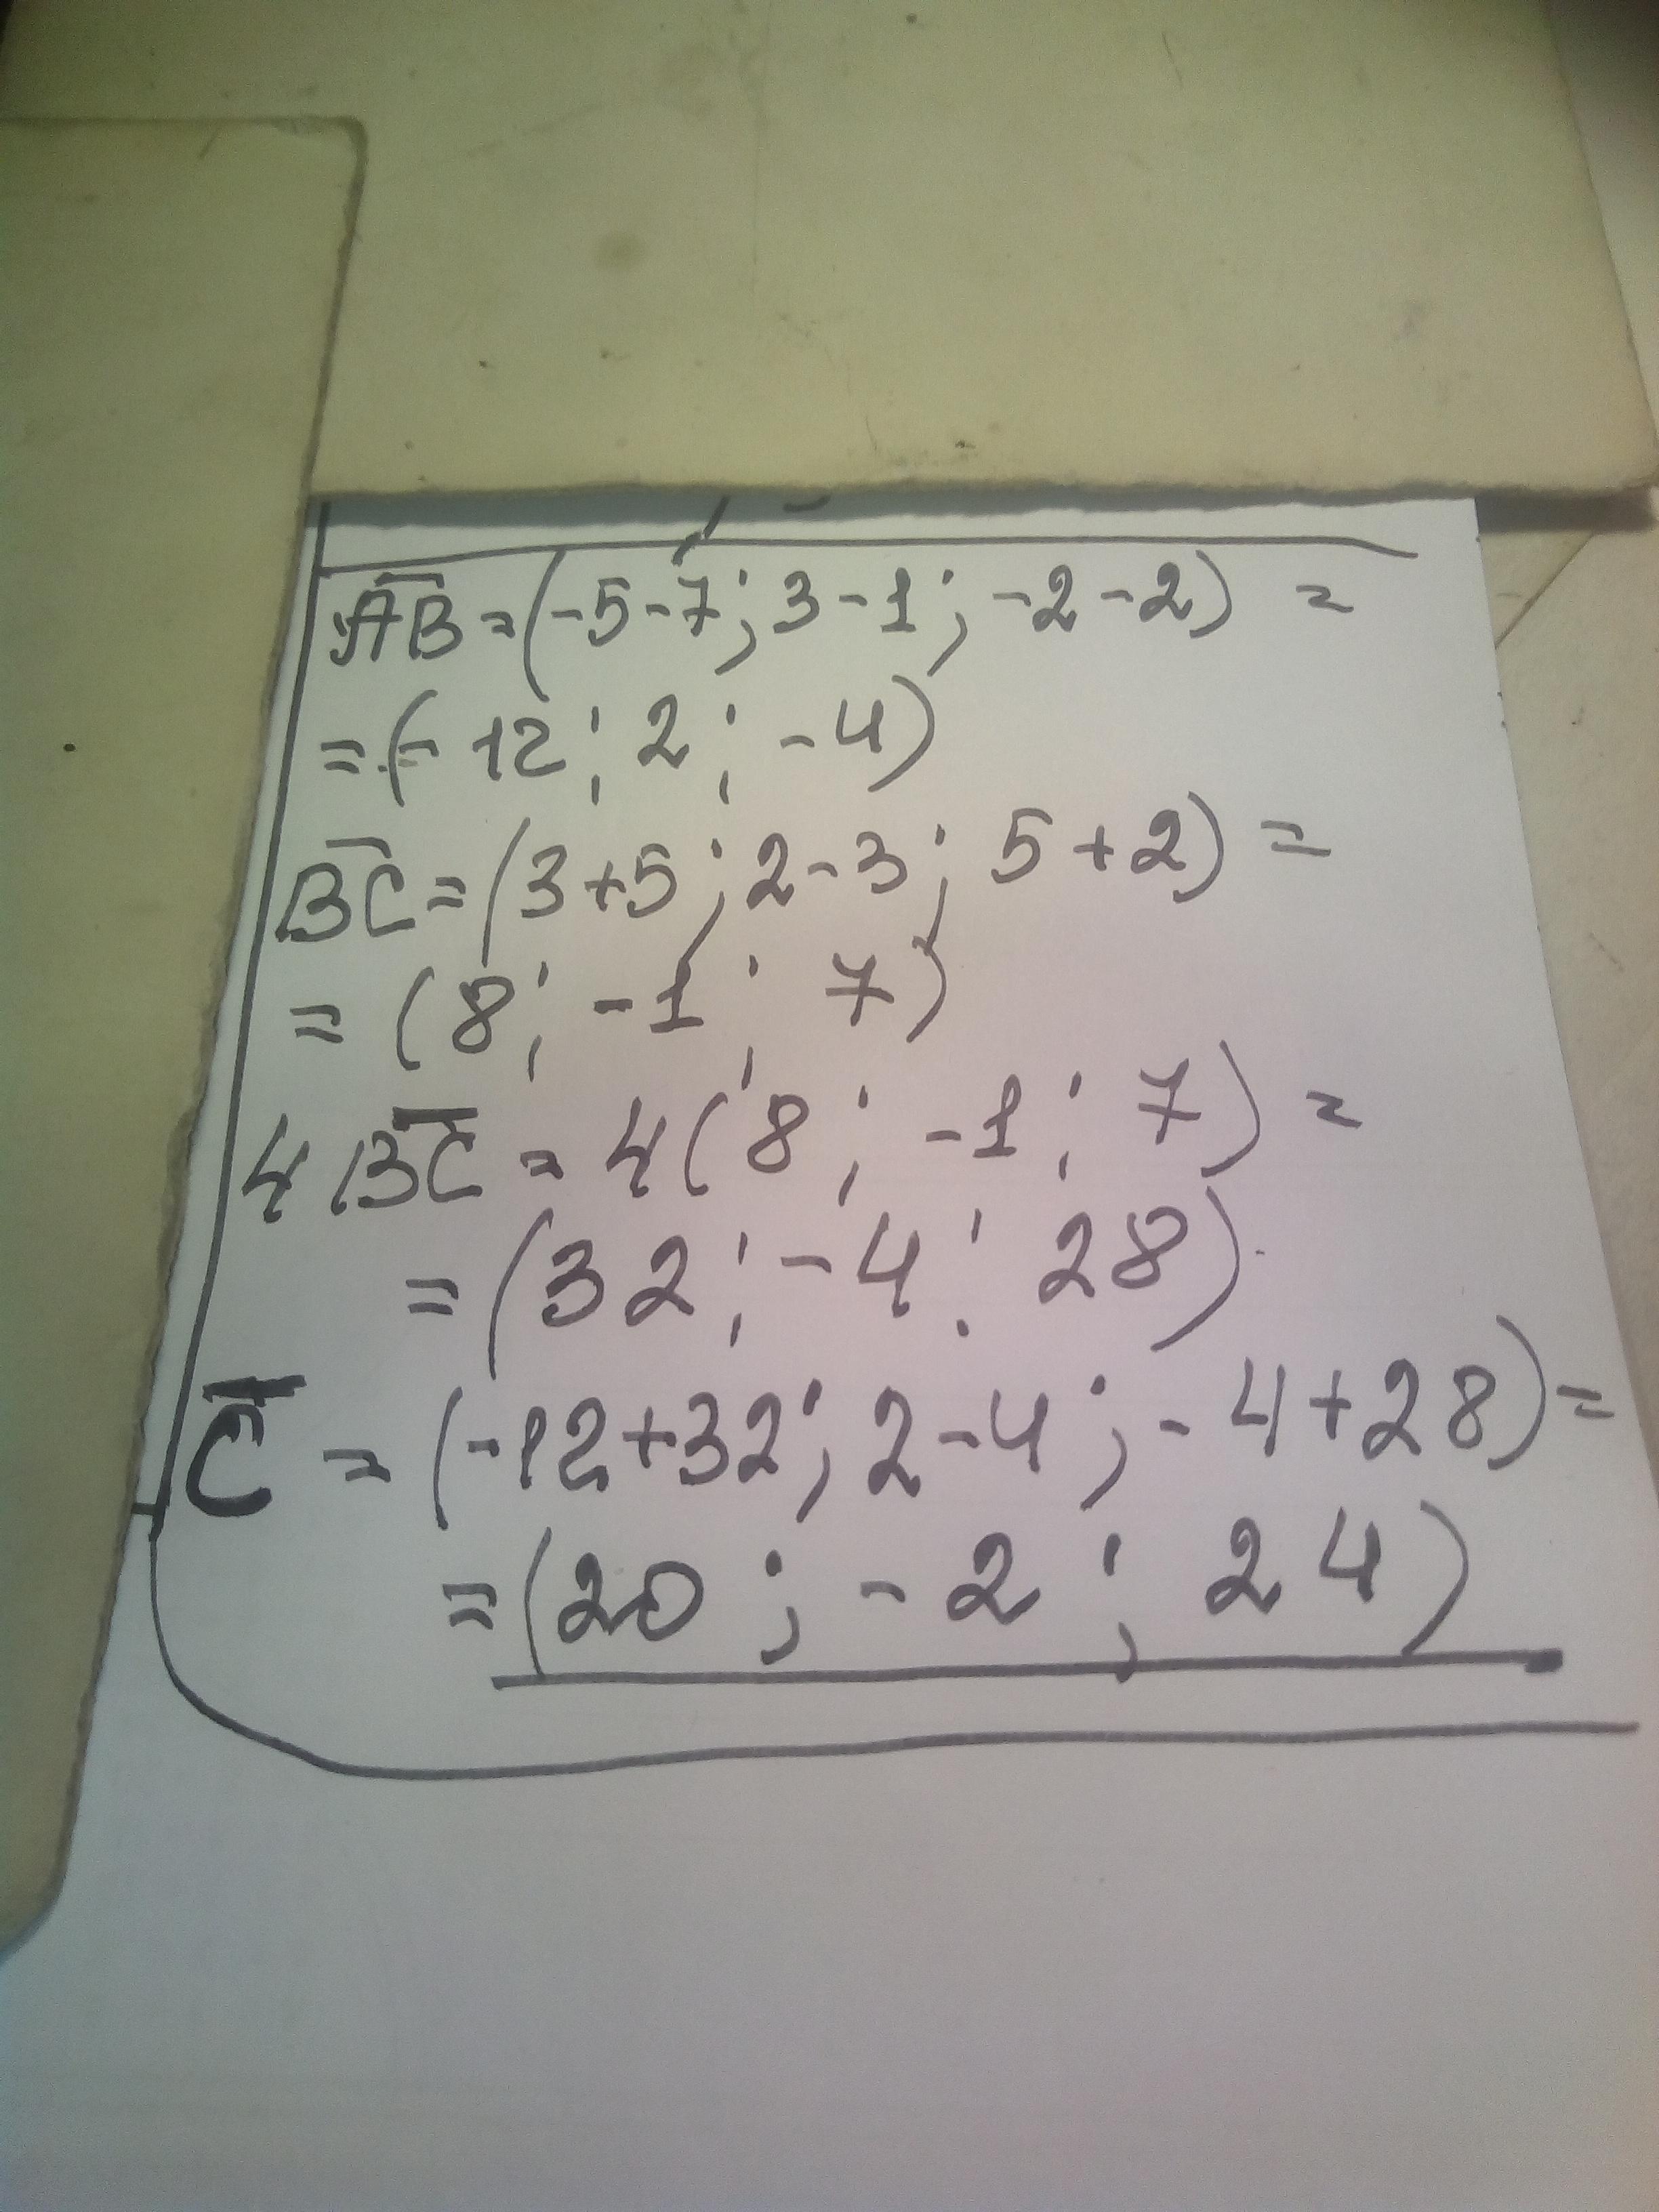 AB = (-5-7; 3-1; -2-2) =
= (-12; 2; -4)
BC = (3+5; 2-3; 5+2) =
= (8; -1; 7)
4 BC = 4(8; -1; 7) =
= (32; -4; 28)
C = (-12+32; 2-4; -4+28) =
= (20; -2; 24)